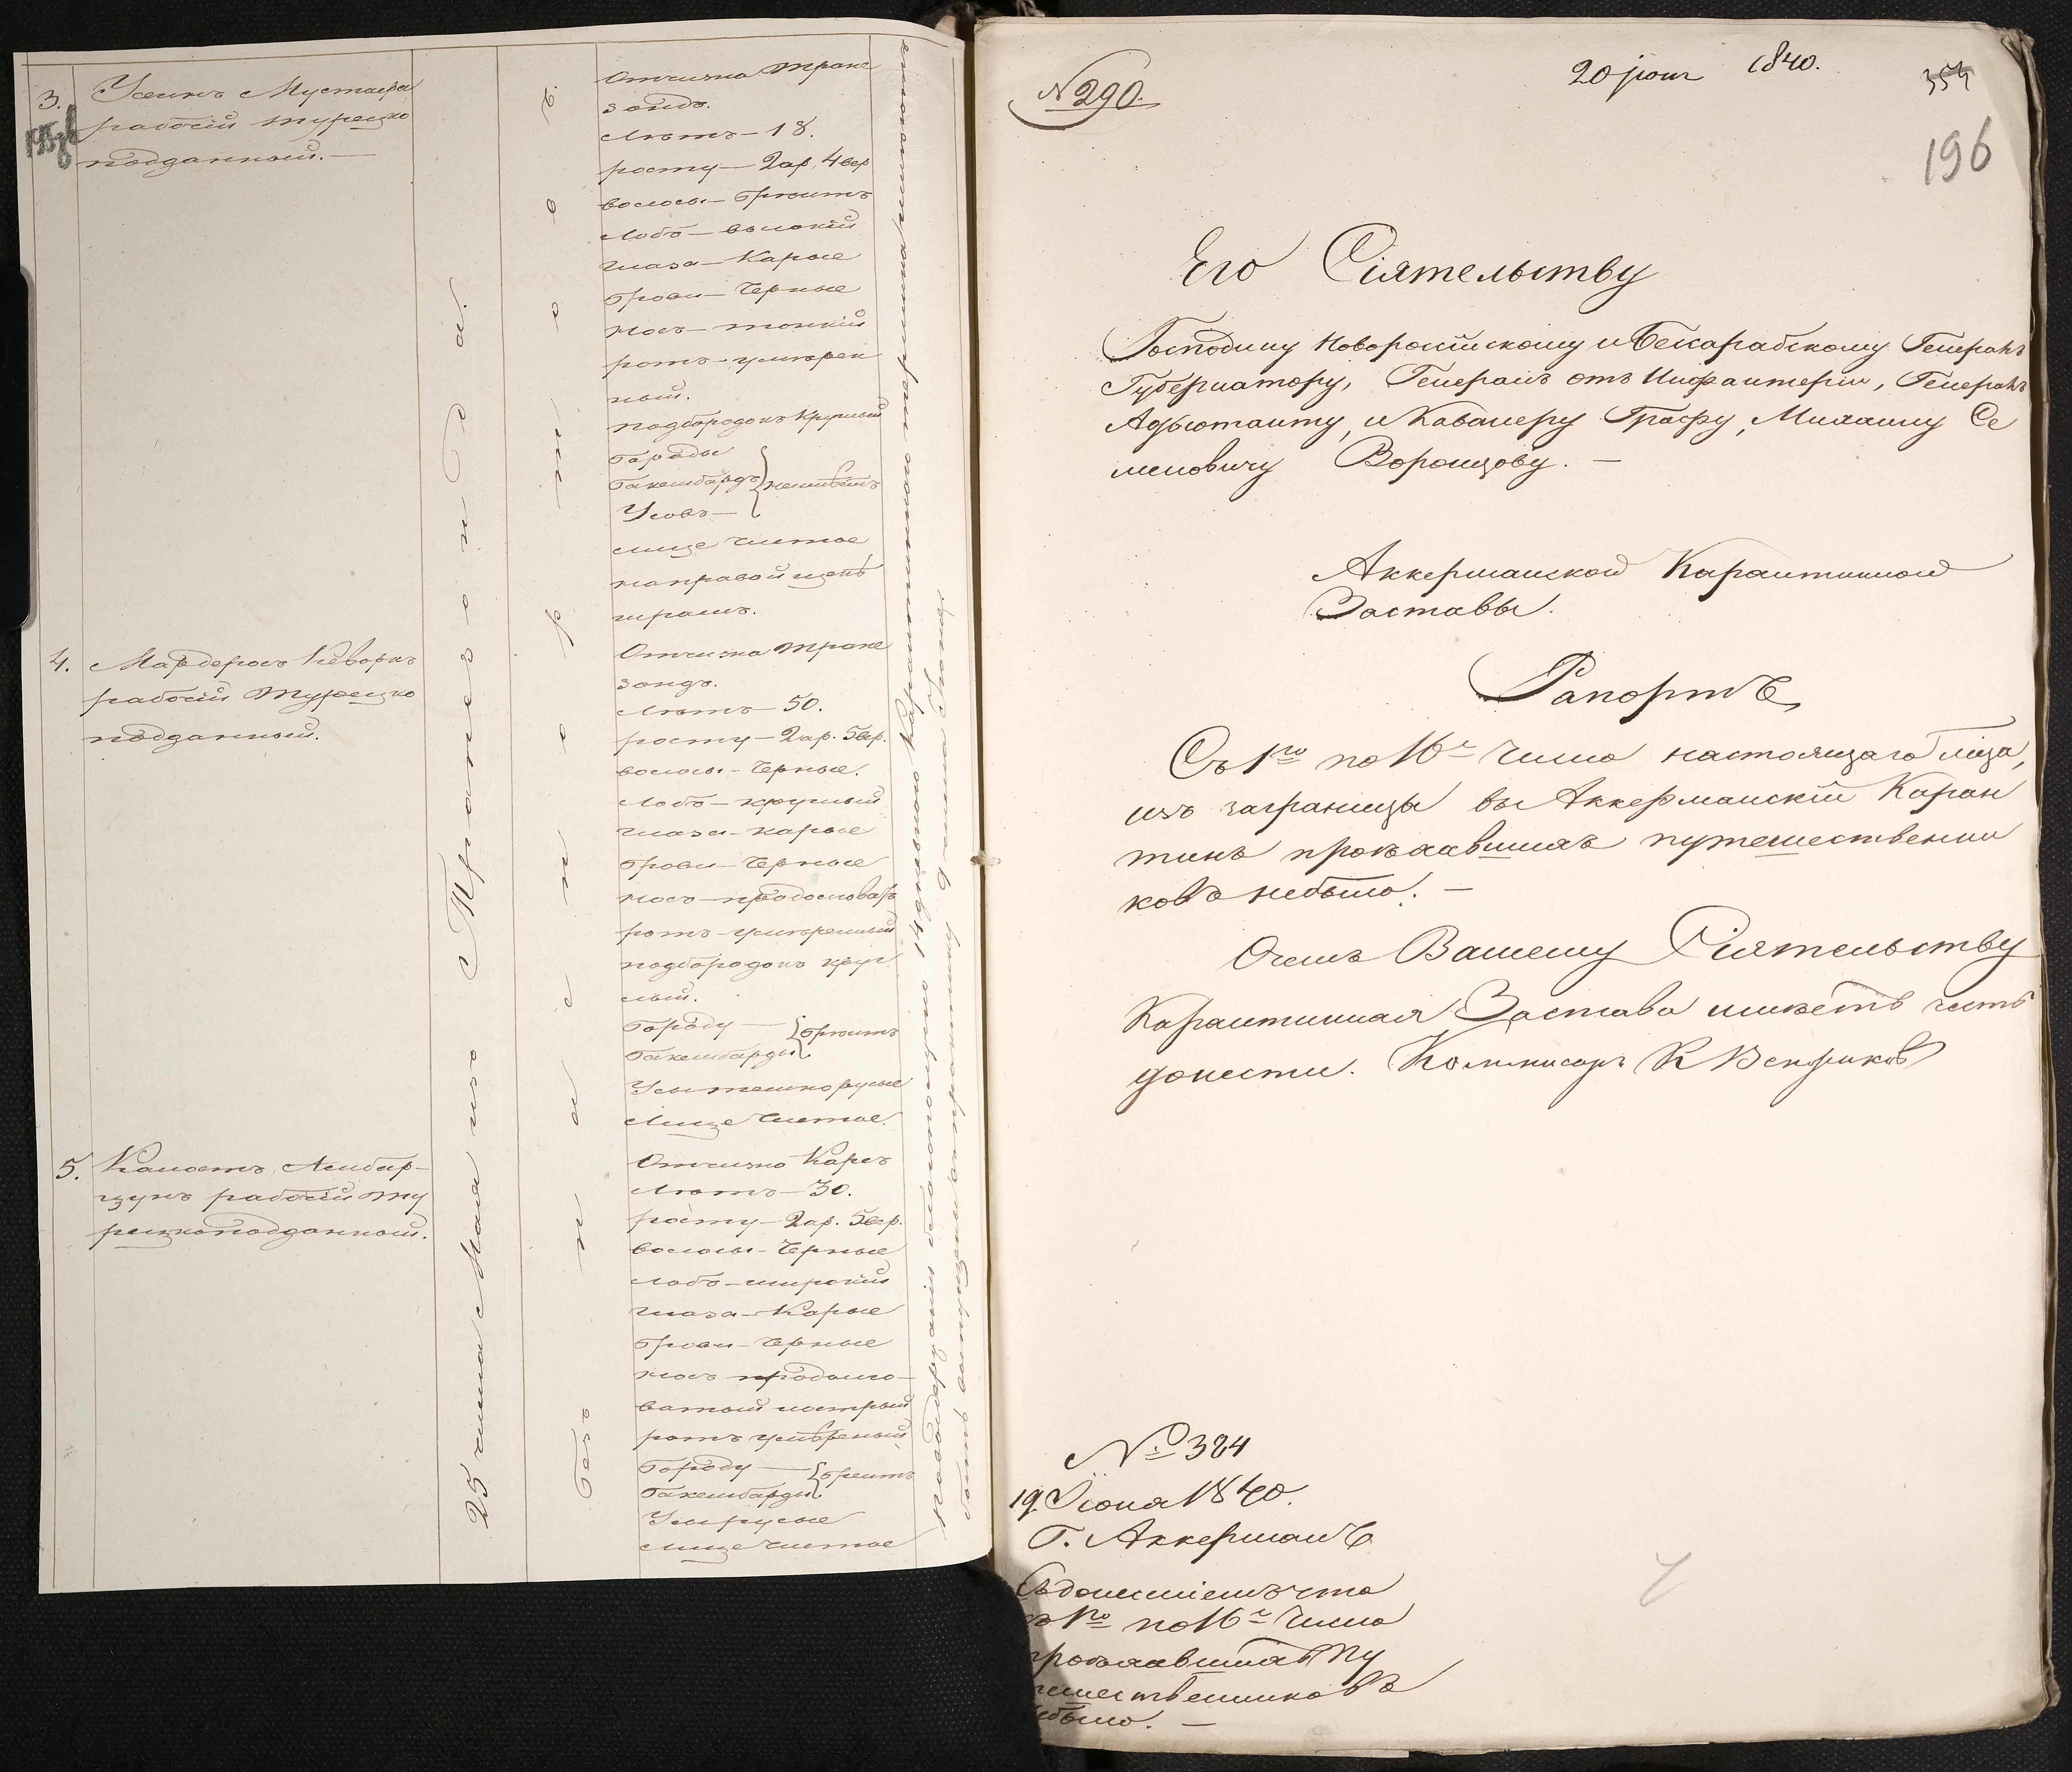 3.
Усеинъ Мустафа
рабочій турецко
подданный. —
4. Мардеросъ Кеворкъ
рабочій турецко
подданный.
5.
рабочій ту
рецкоподданный.
25 числа Мая изъ Трапезонда.
Отчизна Трапе
зондъ.
Лѣтъ — 18.
росту — 2 ар. 4 вер
волосы — брѣитъ
лобъ — высокій
глаза — Карые
брови — Черные
носъ — тонкій
ротъ — умѣрен
ный.
подбородокъ Круглый
бороды
бакенбардъ } неимѣетъ
Усовъ —
лице чистое
на правой щекѣ
шрамъ.
Отчизна Трапе
зондъ.
Лѣтъ — 50.
росту — 2 ар. 5 вер.
волосы — Черные.
лобъ — круглый
глаза — карые
брови — Черные
носъ — продолговат
ротъ — умѣренный
подбородокъ круг
лый.
бороду — { брѣитъ
бакенбарды
Усы темнорусые
лице Чистое.
Отчизна Карсъ
Лѣтъ — 30.
росту — 2 ар. 5 вер.
волосы — Черные
лобъ — широкій
глаза — Карые
брови — Черные
носъ продолго-
ватый
ротъ умѣреный
бороду — { бреитъ
бакенбарды
Усы русые
лице чистое
№ 290.
20 іюня 1840.
354
196
Его Сіятельству
Господину Новороссійскому и Бессарабскому Генералъ
Губернатору, Генералъ отъ Инфантеріи, Генералъ
Адъютанту, и Кавалеру Графу, Михаилу Се
меновичу Воронцову. —
Аккерманской Карантинной
Заставы.
Рапортъ
Съ 1го по 16е Число настоящаго мца,
изъ заграницы въ Аккерманскій Каран
тинъ проѣхавшихъ путешественни
ковъ небыло. —
О чемъ Вашему Сіятельству
Карантинная Застава имѣетъ честь
донести. Коммисаръ
№ 384
19. Іюня 1840.
Г. Аккерманъ
Съ донесеніемъ что
съ 1го по 16е Число
проѣхавшихъ Пу
тешественниковъ
небыло. —